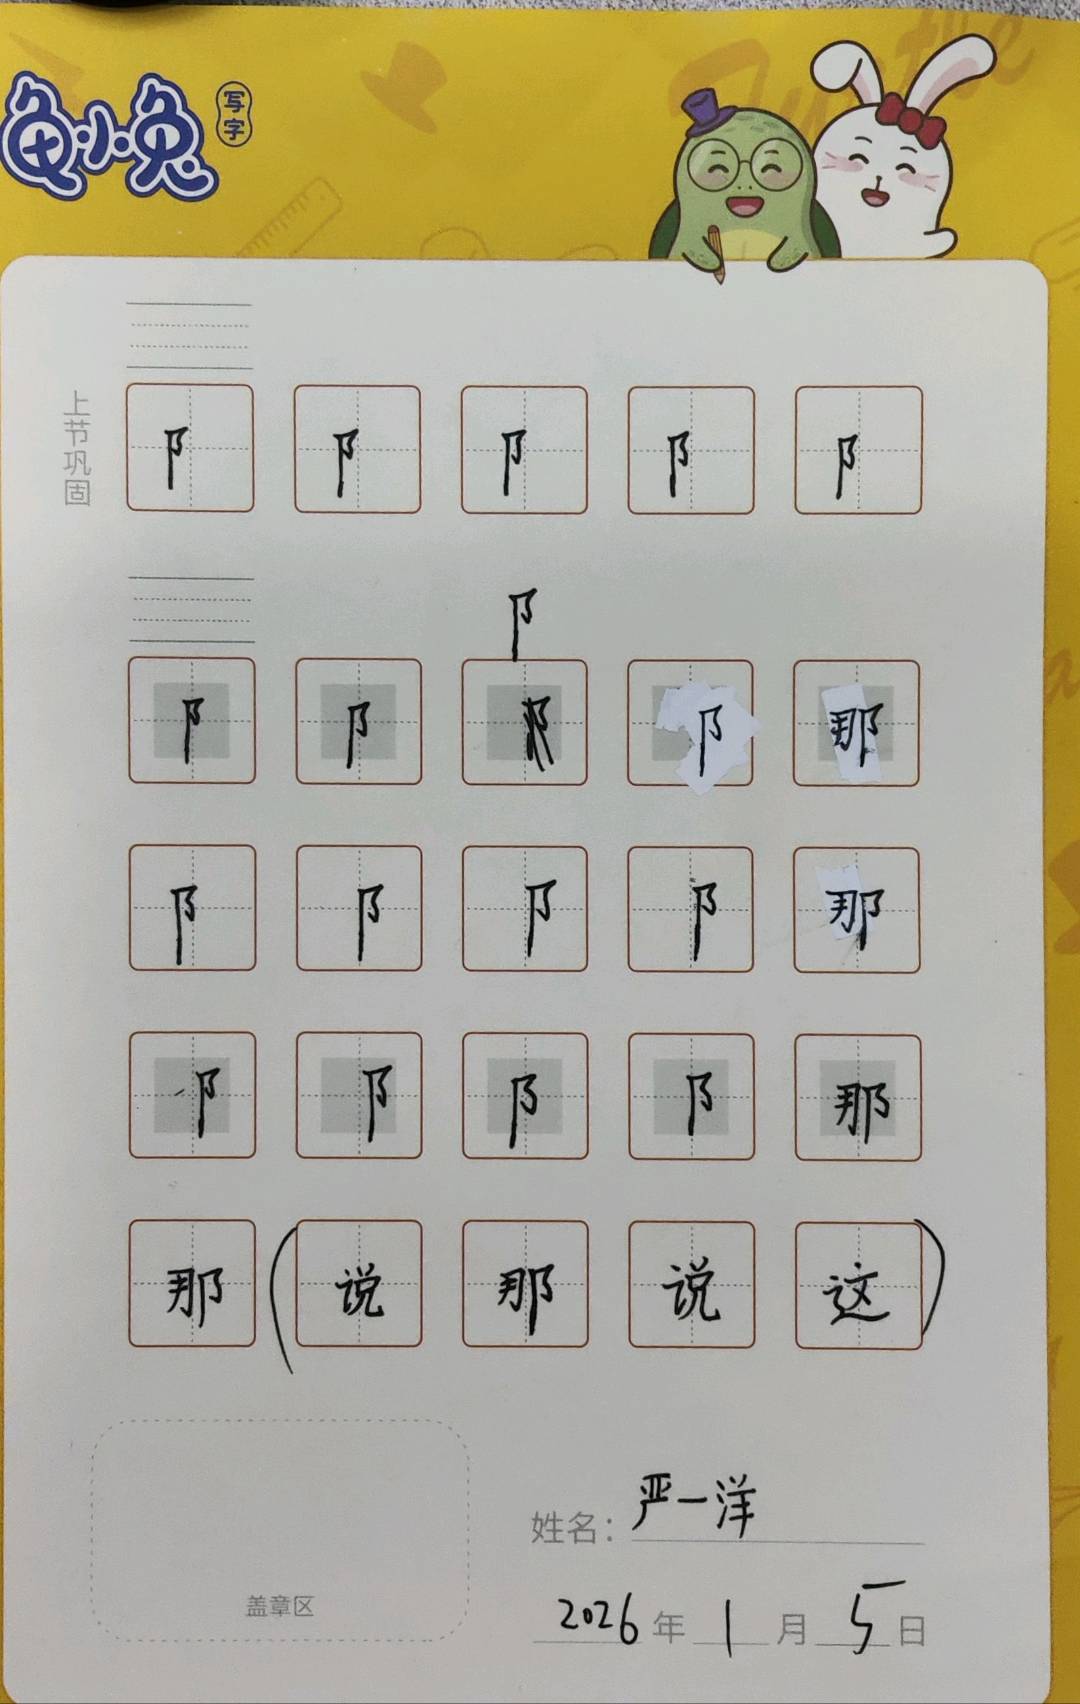 龟小兔
写字
上节巩固
阝 阝 阝 阝 阝
阝
阝 阝 阝 那
阝 阝 阝 阝 那
阝 阝 阝 阝 那
那 (说 那 说 这)
姓名: 严一洋
盖章区
2026 年 1 月 5 日